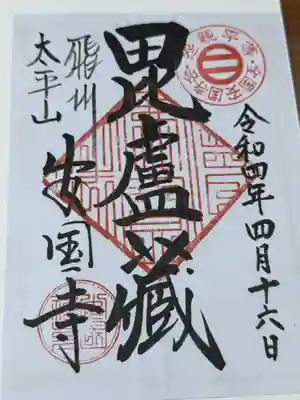 令和四年四月十六日
毘盧蔵
飛州
太平山
安国寺